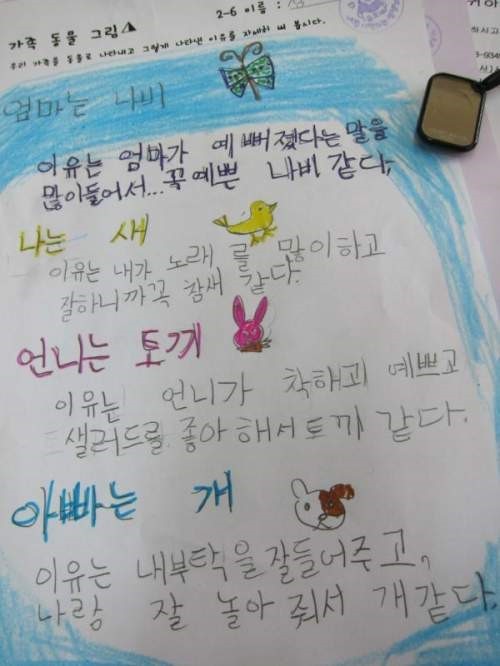 가족 동물 그림
2-6 이름 :
우리 가족을 동물로 나타내고 그렇게 나타낸 이유를 자세히 써 봅시다.
엄마는 나비
이유는 엄마가 예뻐졌다는 말을
많이들어서... 꼭 예쁜 나비 같다.
나는 새
이유는 내가 노래를 많이하고
잘하니까꼭 참새 같다.
언니는 토끼
이유는 언니가 착해괴 예쁘고
샐러드를 좋아해서토끼 같다.
아빠는 개
이유는 내부탁을잘들어주고,
나랑 잘 놀아 줘서 개같다.